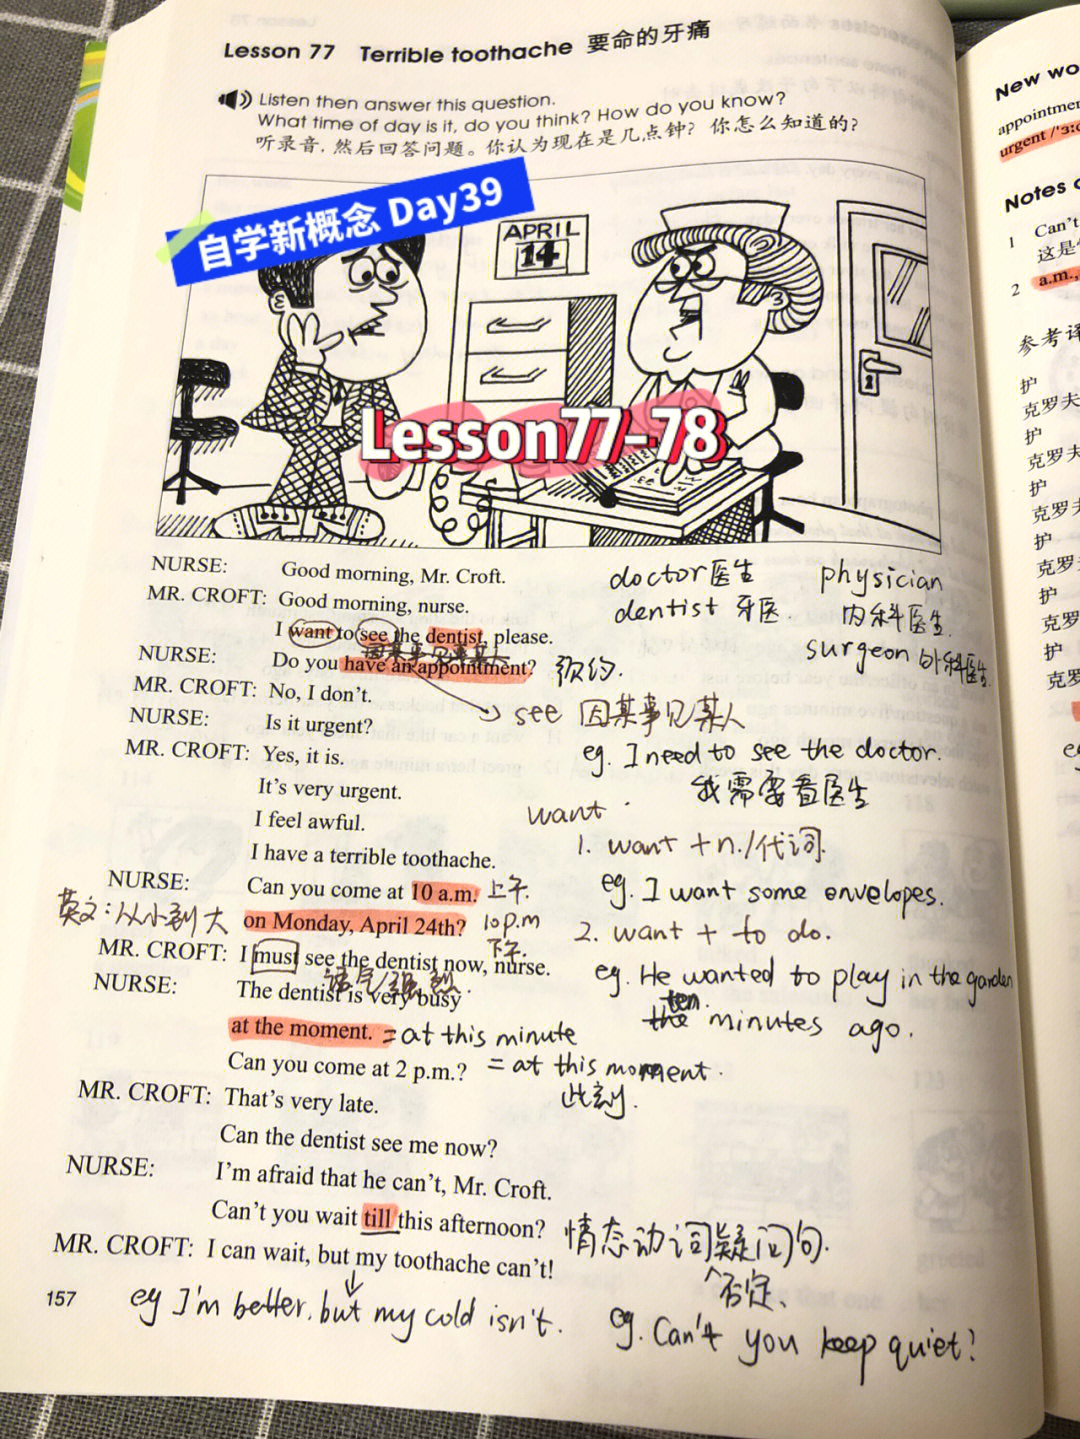 Lesson 77 Terrible toothache 要命的牙痛
Listen then answer this question.
What time of day is it, do you think? How do you know?
听录音,然后回答问题。你认为现在是几点钟?你怎么知道的?
自学新概念 Day39
APRIL
14
Lesson77-78
NURSE: Good morning, Mr. Croft.
MR. CROFT: Good morning, nurse.
I want to see the dentist, please.
因某事见某人
NURSE: Do you have an appointment? 预约.
MR. CROFT: No, I don't.
NURSE: Is it urgent?
MR. CROFT: Yes, it is.
It's very urgent.
I feel awful.
I have a terrible toothache.
NURSE: Can you come at 10 a.m. 上午.
on Monday, April 24th? 10p.m
下午.
英文:从小到大
MR. CROFT: I must see the dentist now, nurse.
语气强烈.
NURSE: The dentist is very busy
at the moment. = at this minute
= at this moment.
此刻.
Can you come at 2 p.m.?
MR. CROFT: That's very late.
Can the dentist see me now?
NURSE: I'm afraid that he can't, Mr. Croft.
Can't you wait till this afternoon?
MR. CROFT: I can wait, but my toothache can't!
157
eg I'm better, but my cold isn't.
doctor医生 physician
dentist 牙医. 内科医生.
surgeon 外科医生.
see 因某事见某人
eg. I need to see the doctor.
我需要看医生
want
1. want +n./代词.
eg. I want some envelopes.
2. want + to do.
eg. He wanted to play in the garden
ten
the minutes ago.
情态动词疑问句.
否定、
eg. Can't you keep quiet?
New wo
appointmen
urgent /ˈɜ:
Notes o
1 Can't
这是
2 a.m.,
参考译
护
克罗夫
护
克罗夫
护
克罗夫
护
克罗夫
护
克罗夫
护
克罗